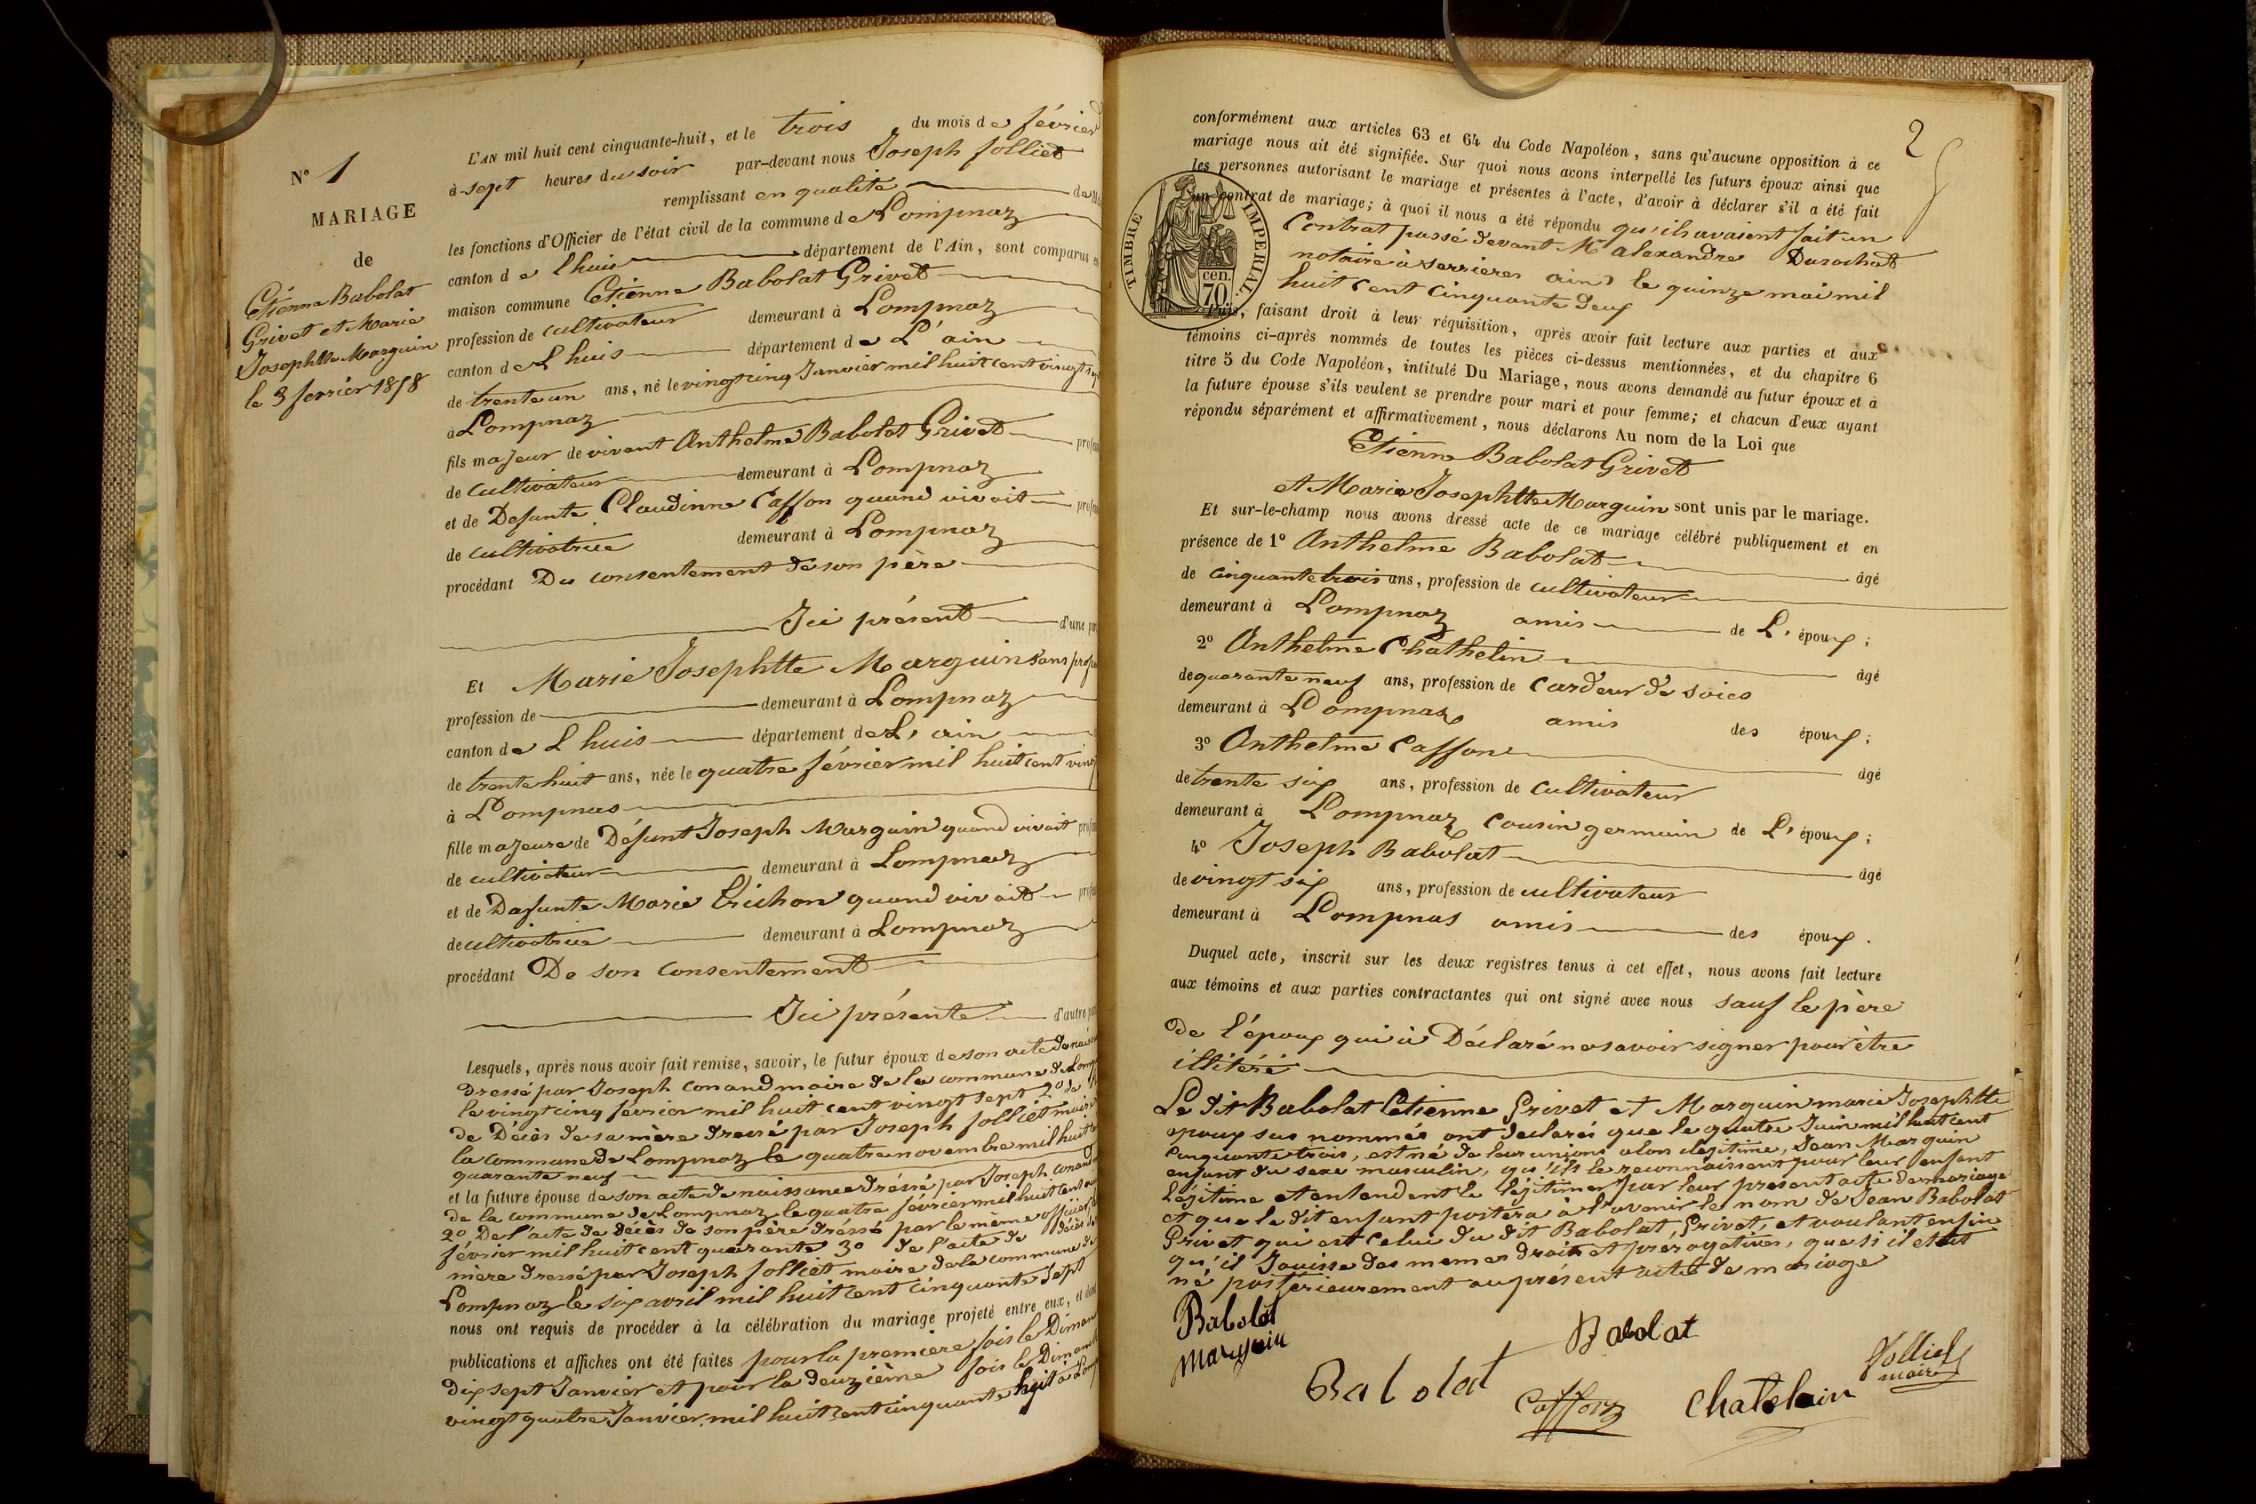 N° 1
MARIAGE
de
Etienne Babolat
Grivet et Marie
Josephtte Marguin
le 3 fevrier 1858
L'AN mil huit cent cinquante-huit, et le trois du mois de février
à sept heures du soir par-devant nous Joseph Jolliet
remplissant en qualité de
les fonctions d'Officier de l'état civil de la commune de Lompnaz
canton de Lhuis département de l'Ain, sont comparus en
maison commune Etienne Babolat Grivet
profession de cultivateur demeurant à Lompnaz
canton de Lhuis département de L'ain
de trente un ans, né le vingt cinq Janvier mil huit cent vingt sept
à Lompnaz
fils majeur de vivant Anthelme Babolat Grivet
de cultivateur demeurant à Lompnaz
et de Defunte Claudinne Caffon quand vivait
de cultivatrice demeurant à Lompnaz
procédant Du consentement de son père
Ici présent d'une
Et Marie Josephtte Marguin sans
profession de demeurant à Lompnaz
canton de Lhuis département de L'ain
de trente huit ans, née le quatre février mil huit cent
à Lompnas
fille majeure de Défunt Joseph Marguin quand vivait
de cultivateur demeurant à Lompnaz
et de Defunte Marie Trichon quand vivait
de cultivatrice demeurant à Lompnaz
procédant De son consentement
Ici présente d'autre
Lesquels, après nous avoir fait remise, savoir, le futur époux de son acte de
dressé par Joseph Conand maire de la commune de
le vingt cinq février mil huit cent vingt sept 2° de
de Décès de sa mère dressé par Joseph Jolliet maire
la commune de Lompnaz le quatre novembre mil huit
quarante neuf
et la future épouse de son acte de naissance dréssé par Joseph Conand
de la commune de Lompnaz le quatre février mil huit cent
2° De l'acte de décès de son père dréssé par le même officier
février mil huit cent quarante 3° de l'acte de décès de
mère dressé par Joseph Jolliet maire de la commune de
Lompnaz le six avril mil huit cent cinquante sept
nous ont requis de procéder à la célébration du mariage projeté entre eux, et dont
publications et affiches ont été faites pour la premiere fois le
dix sept Janvier et pour la deuzième fois le
vingt quatre Janvier mil huit cent cinquante huit à
2
conformément aux articles 63 et 64 du Code Napoléon, sans qu'aucune opposition à ce
mariage nous ait été signifiée. Sur quoi nous avons interpellé les futurs époux ainsi que
les personnes autorisant le mariage et présentes à l'acte, d'avoir à déclarer s'il a été fait
un contrat de mariage; à quoi il nous a été répondu qu'ils avaient fait un
Contrat passé devant Me alexandre Durochat
notaire à serrieres ain le quinze mai mil
huit cent cinquante deux
TIMBRE IMPERIAL.
70 cen.
Puis, faisant droit à leur réquisition, après avoir fait lecture aux parties et aux
témoins ci-après nommés de toutes les pièces ci-dessus mentionnées, et du chapitre 6
titre 5 du Code Napoléon, intitulé Du Mariage, nous avons demandé au futur époux et à
la future épouse s'ils veulent se prendre pour mari et pour femme; et chacun d'eux ayant
répondu séparément et affirmativement, nous déclarons Au nom de la Loi que
Etienne Babolat Grivet
et Marie Josephtte Marguin sont unis par le mariage.
Et sur-le-champ nous avons dressé acte de ce mariage célébré publiquement et en
présence de 1° Anthelme Babolat âgé
de cinquante trois ans, profession de cultivateur
demeurant à Lompnaz amis de L'époux;
2° Anthelme Chathelin âgé
de quarante neuf ans, profession de Cardeur de soies
demeurant à Lompnaz amis des époux;
3° Anthelme Caffon âgé
de trente six ans, profession de cultivateur
demeurant à Lompnaz cousin germain de L'époux;
4° Joseph Babolat âgé
de vingt six ans, profession de cultivateur
demeurant à Lompnas amis des époux.
Duquel acte, inscrit sur les deux registres tenus à cet effet, nous avons fait lecture
aux témoins et aux parties contractantes qui ont signé avec nous sauf le père
de l'époux qui à Déclaré ne savoir signer pour être
illitéré
Le dit Babolat Etienne Grivet et Marguin marie Josephtte
epoux sus nommés ont declarés que le quatre Juin mil huit cent
cinquante trois, est né de leur unions alors illégitime, Jean Marguin
enfant du sexe masculin, qu'ils le reconnaissent pour leur enfant
légitime et entendent le légitimer par leur present acte de mariage
et que le dit enfant portera à l'avenir le nom de Jean Babolat
Grivet qui est celui du dit Babolat, Grivet, et voulant enfin
qu'il Jouisse des memes droits et prérogatives, que si il etait
né postérieurement au présent acte de mariage
Babolat
marguin
Babolat
Babolat
Caffon
Chatelain
Jolliet
maire